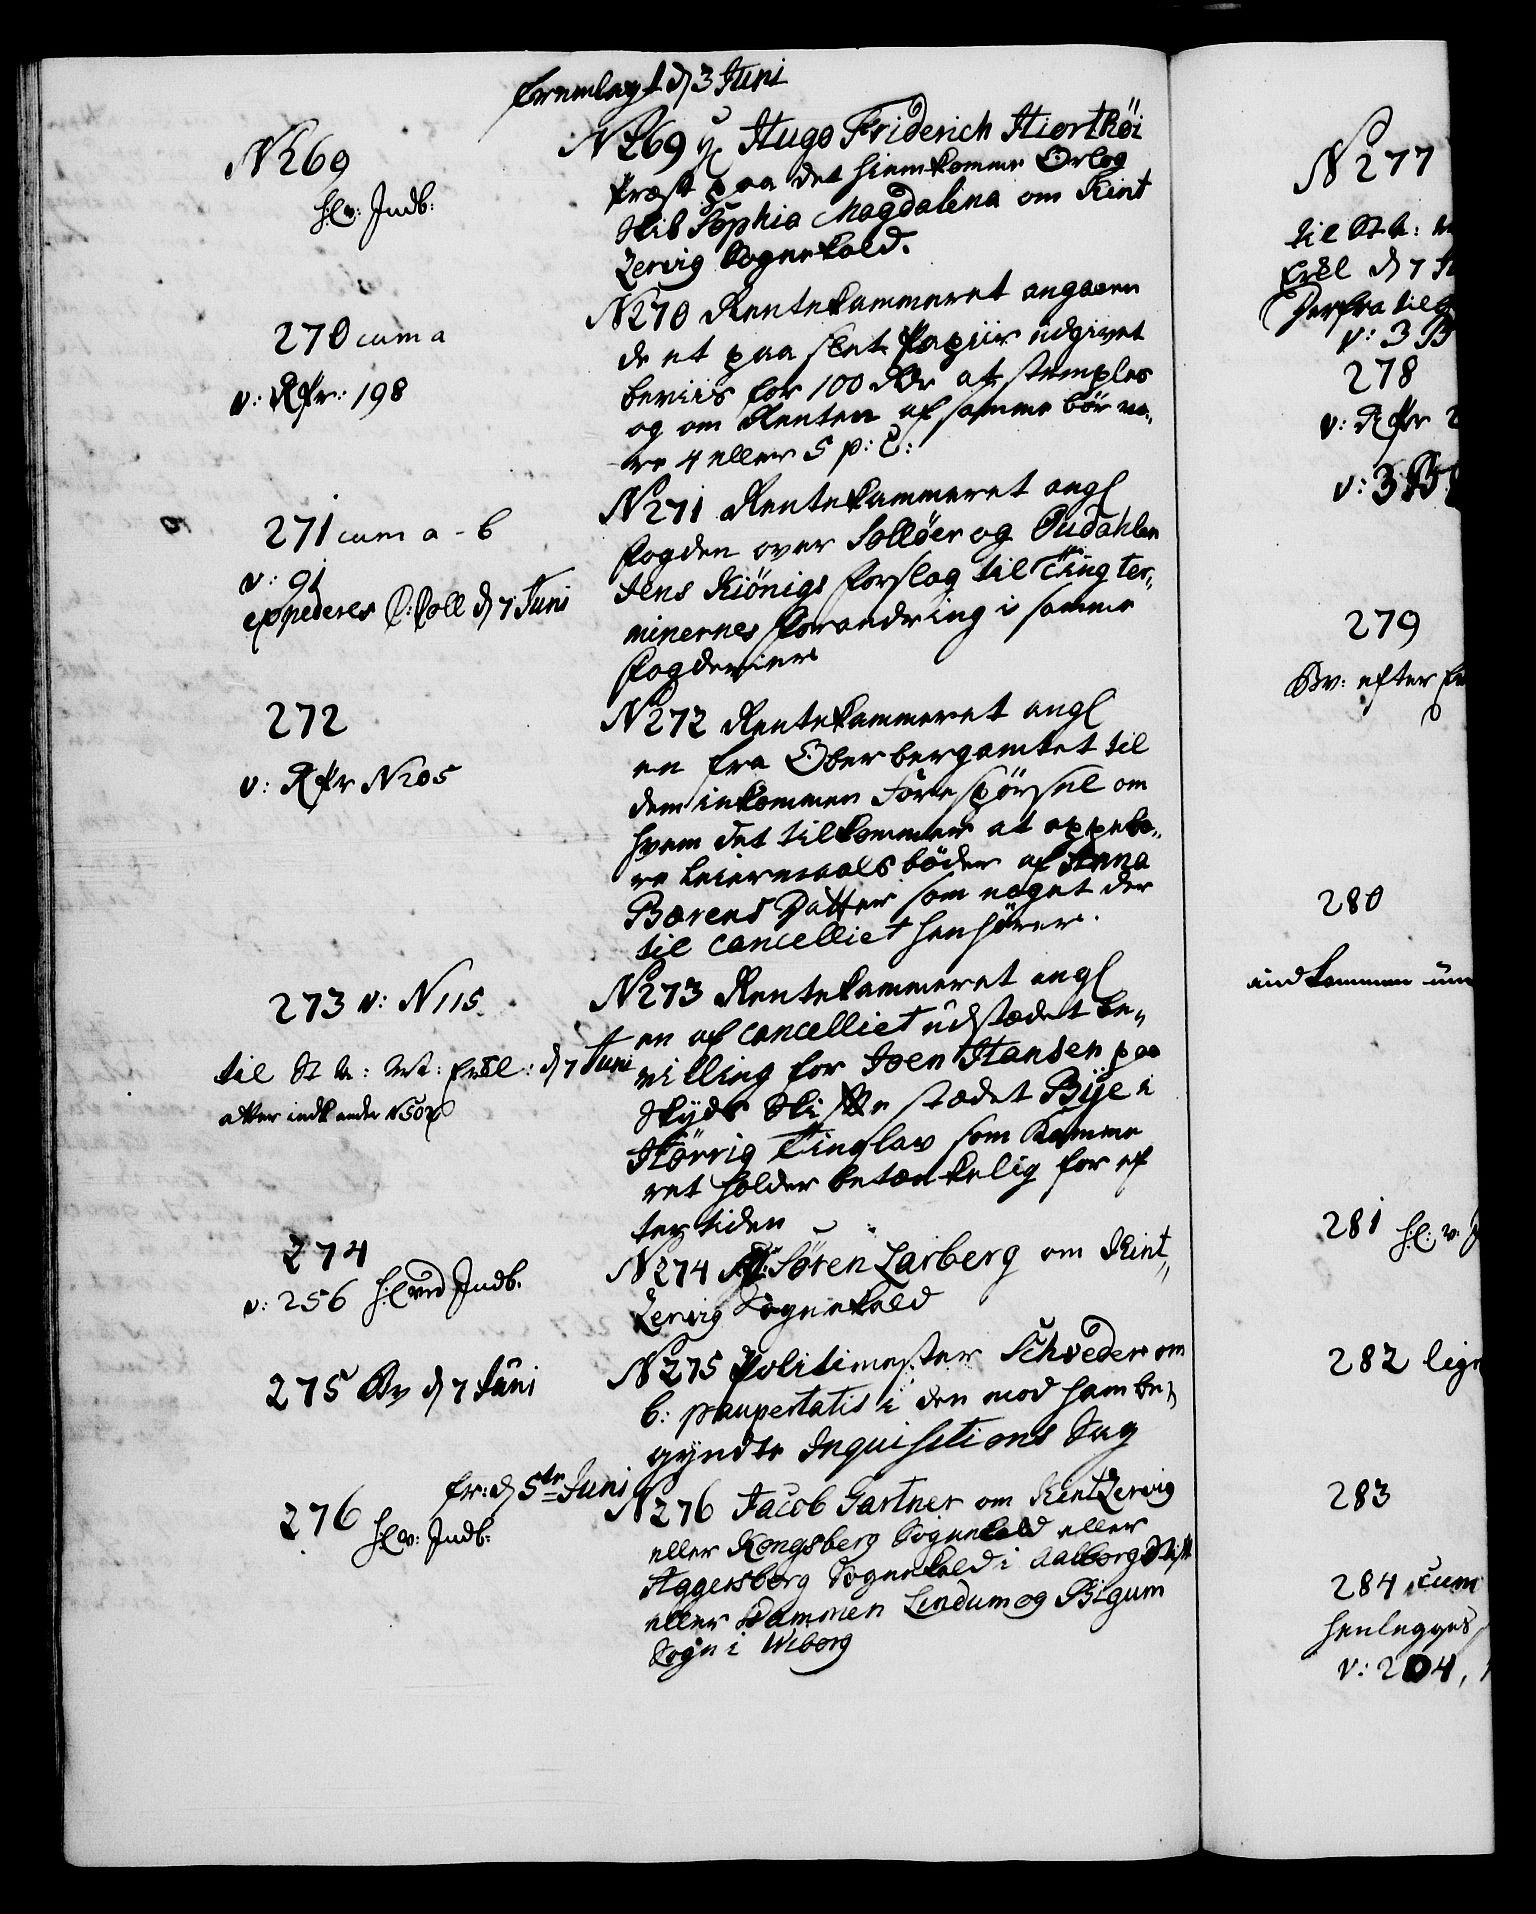 fremlagt d 3 Juni
N 269
hl v: Indb:
N 269 Hugo Friderich Hiorthöi
Præst paa det hiemkomne Orlog
Skib Sophia Magdalena om Kint
Zervig Sognekald.
270 cum a
v: RPr: 198
N 270 Rentekammeret angaaen
de et paa slet Papiir udgivet
beviis for 100 Rdr at stemples
og om Renten af samme bör væ,,
re 4 eller 5 p: C:
271 cum a - b
v: 91
expederes C: Coll d 7 Juni
N 271 Rentekammeret angl
fogden over Solløer og Oudahlen
Jens Kiönigs forslag til Ting ter,,
minernes forandring i samme
fogderier
272
v: RPr N 205
N 272 Rentekammeret angl
en fra Oberbergamtet til
dem inkommen Forespörsel om
hvem det tilkommer at oppebæ,,
re Leiermaals böder af Anna
Bærens Datter som noget der
til Cancelliet henhører.
273 v: N 115
til St A: Mt: frstl: d 7 Juni
atter indk under N 502
N 273 Rentekammeret angl
en af Cancelliet udstædet be,,
villing for Joen Hansen paa
Skyds Skifte stædet Bye i
Hörrig Tinglav som Kamme
ret holder betænkelig for ef
tertiden
274
v: 256 hl ved Indb.
N 274 Sören Zarberg om Kint,,
Zervig Sognekald
275 Bv d 7 Juni
N 275 Politimester Schveder om
b: paupertatis i den mod ham be,,
gyndte Inquisitions Sag
fr: d 5te Juni
276 hl v: Indb:
N 276 Jacob Gartner om KintZervig
eller Kongsberg Sognekald eller
Aggersborg Sognekald i Aalborg Stift
eller Dammen Lindum og Bigum
Sogn i Wiborg
N 277
til St A:
frstl d 7
v: 3 B
278
v: RPr
v: 3 B
279
Bv: efter
280
indkommen
281 hl: v:
282
283
284 cum
henlegges
v: 204,